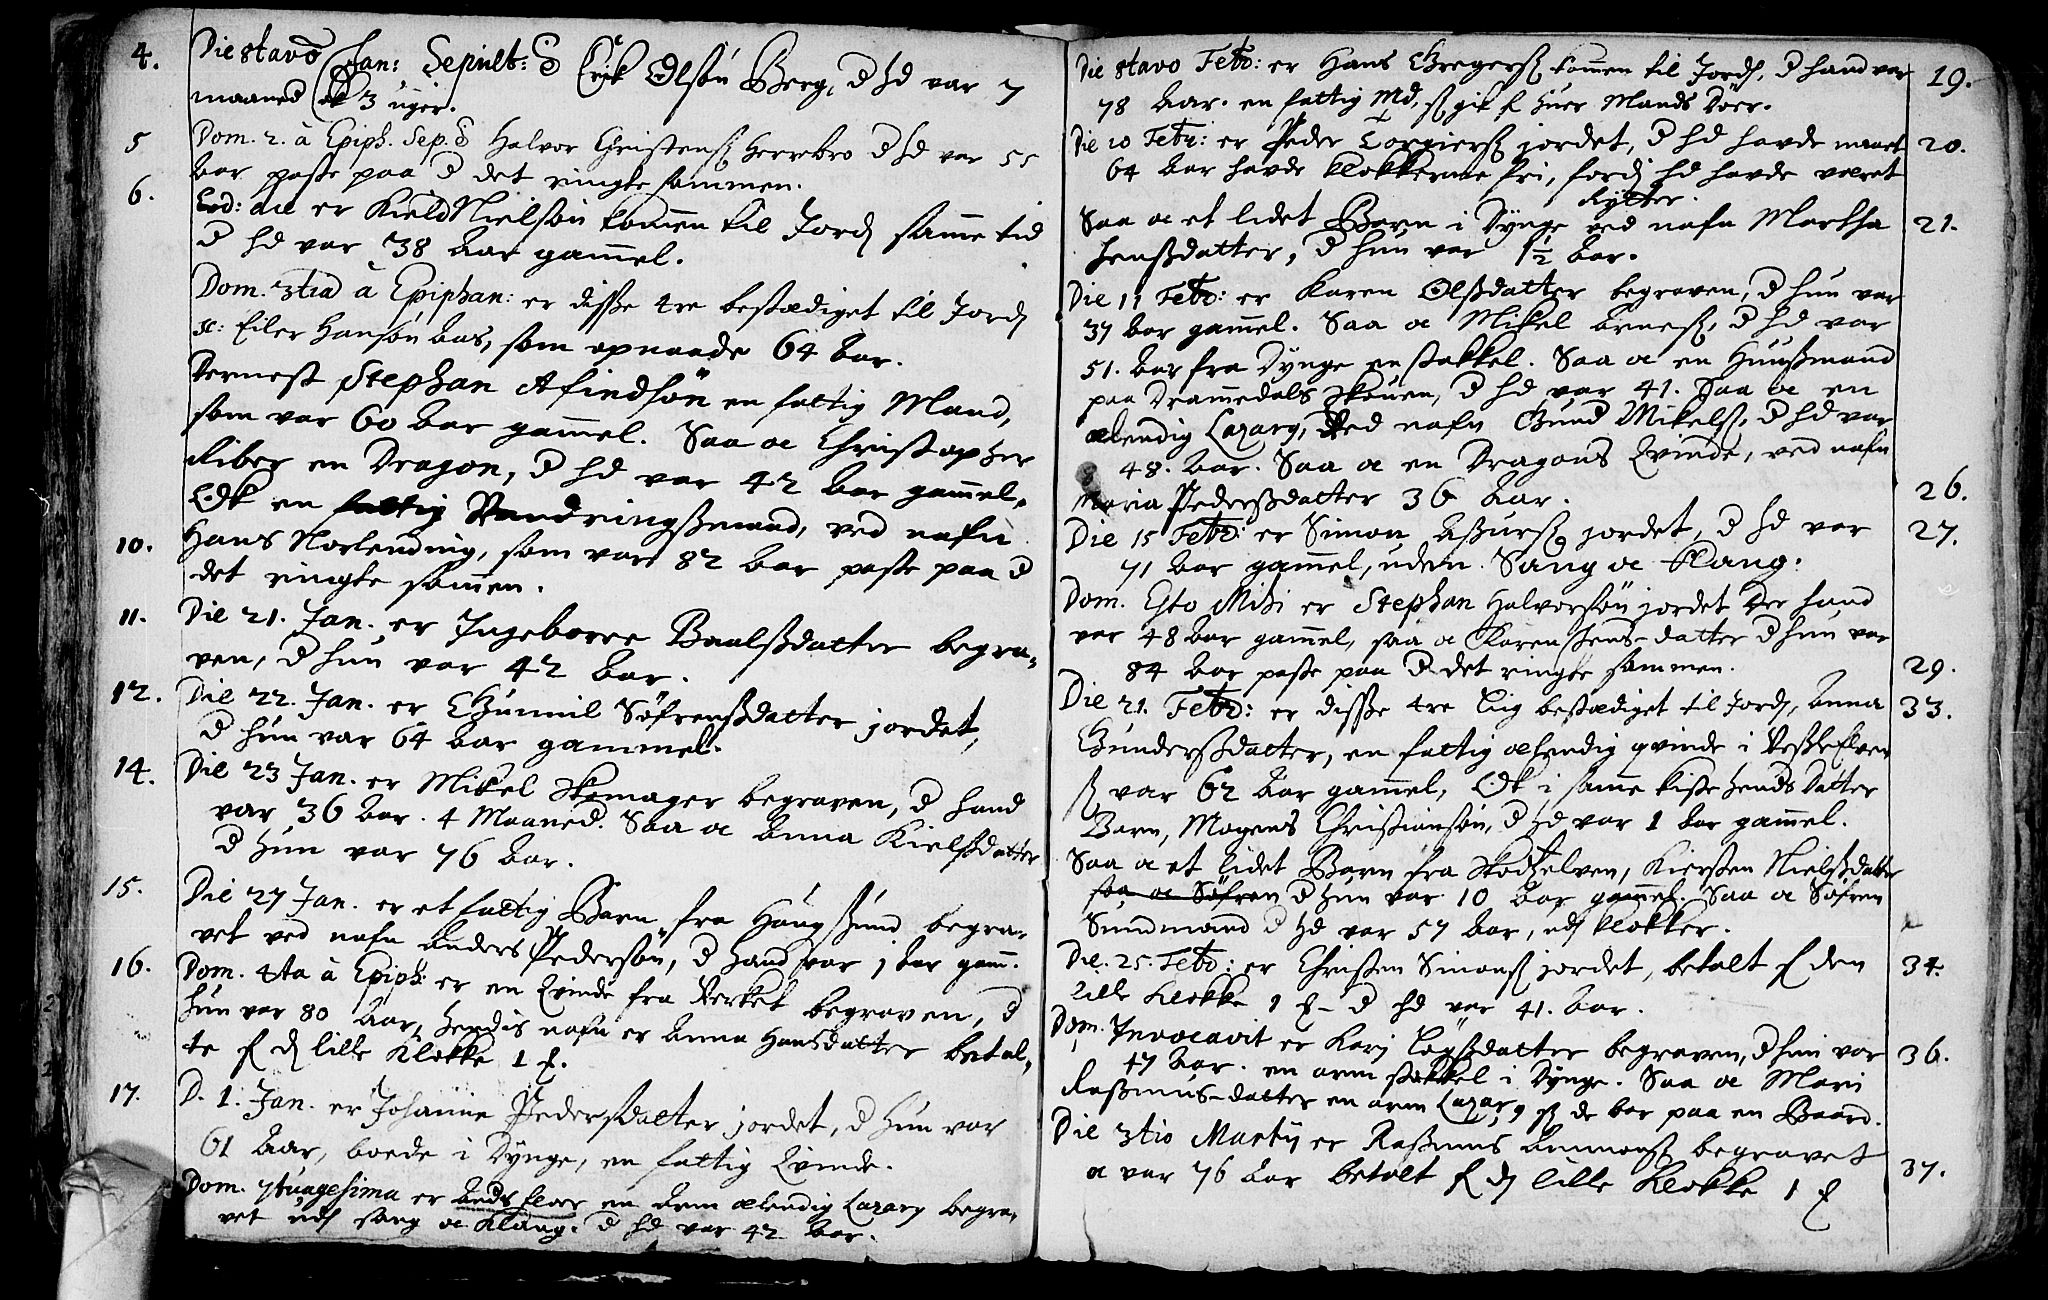 4. Die 8tavo Jan: Sepult: Erik Olsøn Berg, d hd var 7
maaned ok 3 uger.
5 Dom. 2. à Epiph. Sep. Halvor Christens Herrebro d hd var 55
Aar paste paa d det ringte sammen.
6. Eod: die er Kield Nielsøn komen til Jord samme tid
d hd var 38 Aar gamel.
Dom. 3tia à Epiphan: er disse 4re bestædiget til Jord
sc: Eiler Hansøn Aas, som opnaade 64 Aar.
Dernest Stephan Afindsøn en fattig Mand,
som var 60 Aar gamel. Saa oc Christopher
Riber en Dragon, d hd var 42 Aar gamel.
Ok en fattig Vandringsmand, ved nafn
10. Hans Norlending, som var 82 Aar paste paa d
det ringte samen.
11. Die 21. Jan. er Ingeborre Baalsdatter begra-
ven, d hun var 42 Aar.
12. Die 22. Jan. er Gunnil Søfrensdatter jordet,
d hun var 64 Aar gammel.
14. Die 23 Jan. er Mikel Skomager begraven, d hand
var 36 Aar. 4 Maaned. Saa oc Anna Kielsdatter
d hun var 76 Aar.
15. Die 27 Jan. er et fattig Barn fra Haugsund begra-
vet ved nafn Anders Pedersøn, d hand var 1 Aar gam.
16. Dom. 4ta à Epiph: er en Qvinde fra Verket begraven, d
hun var 80 Aar, hendis nafn er Anna Hansdatter betal-
te f d lille Klokke 1
17. D. 1. Jan. er Johanne Pedersdatter jordet, d hun var
61 Aar, boede i Dynge, en fattig Qvinde.
Dom. 7tuagesima er en Arm ælendig Lazarg begra-
vet ud sang oc Klang. d hd var 42 Aar.
Die 8tavo Febr: er Hans Gregers komen til Jord, d hand var 19.
78 Aar. en fattig Md, s gik f huer Mands Dør.
Die 10 Febr: er Peder Torgiers jordet, d hd havde naaet 20.
64 Aar havde klokkerne fri, ford hd havde været
Rytter.
Saa oc et lidet Barn i Dynge ved nafn Martha 21.
Jensdatter, d hun var 1½ Aar.
Die 11 Febr: er Karen Olsdatter begraven, d hun var
37 Aar gamel. Saa oc Mikel Arnes, d hd var
51. Aar fra Dynge en stakkel. Saa oc en Huusmand
paa Dramedals Skouen, d hd var 41. Saa oc en
ælendig Lazarg, Ved nafn Gund Mikels, d hd var
48. Aar. Saa oc en Dragons Qvinde, ved nafn
Maria Pedersdatter 36 Aar. 26.
Die 15 Febr: er Simon Assurs jordet, d hd var 27.
71 Aar gammel, uden Sang oc Klang.
Dom. Esto Mihi er Stephan Halvorsøn jordet Der hand
var 48 Aar gamel, saa oc Karen Jens-datter d hun var
84 Aar paste paa d det ringte sammen. 29.
Die 21. Febr: er disse 4re Liig bestædiget til Jord, Anna 33.
Gundersdatter, en fattig ælendig qvinde i
s var 62 Aar gamel, Ok i samme kiste hends Datter
Barn, Mogens Christiansøn, d hd var 1 Aar gamel.
Saa oc et lidet Barn fra Skotselven, Kiersten Nielsdatter
saa oc Søfren d hun var 10 Aar gamel. Saa oc Søfren
Sundmand d hd var 57 Aar, ud klokker.
Die. 25. Febr: er Christen Simons jordet, betalt f den 34.
lille Klokke 1 - d hd var 41. Aar.
Dom. Invocavit er Kari begraven, d hun var 36.
47 Aar. en arm stakkel i Dynge. Saa oc Mari
Rasmus-datter en arm Lazarg s de bar paa en Baard.
Die 3tio Martij er Rasmus begravet
oc var 76 Aar betalt f d lille Klokke 1 37.